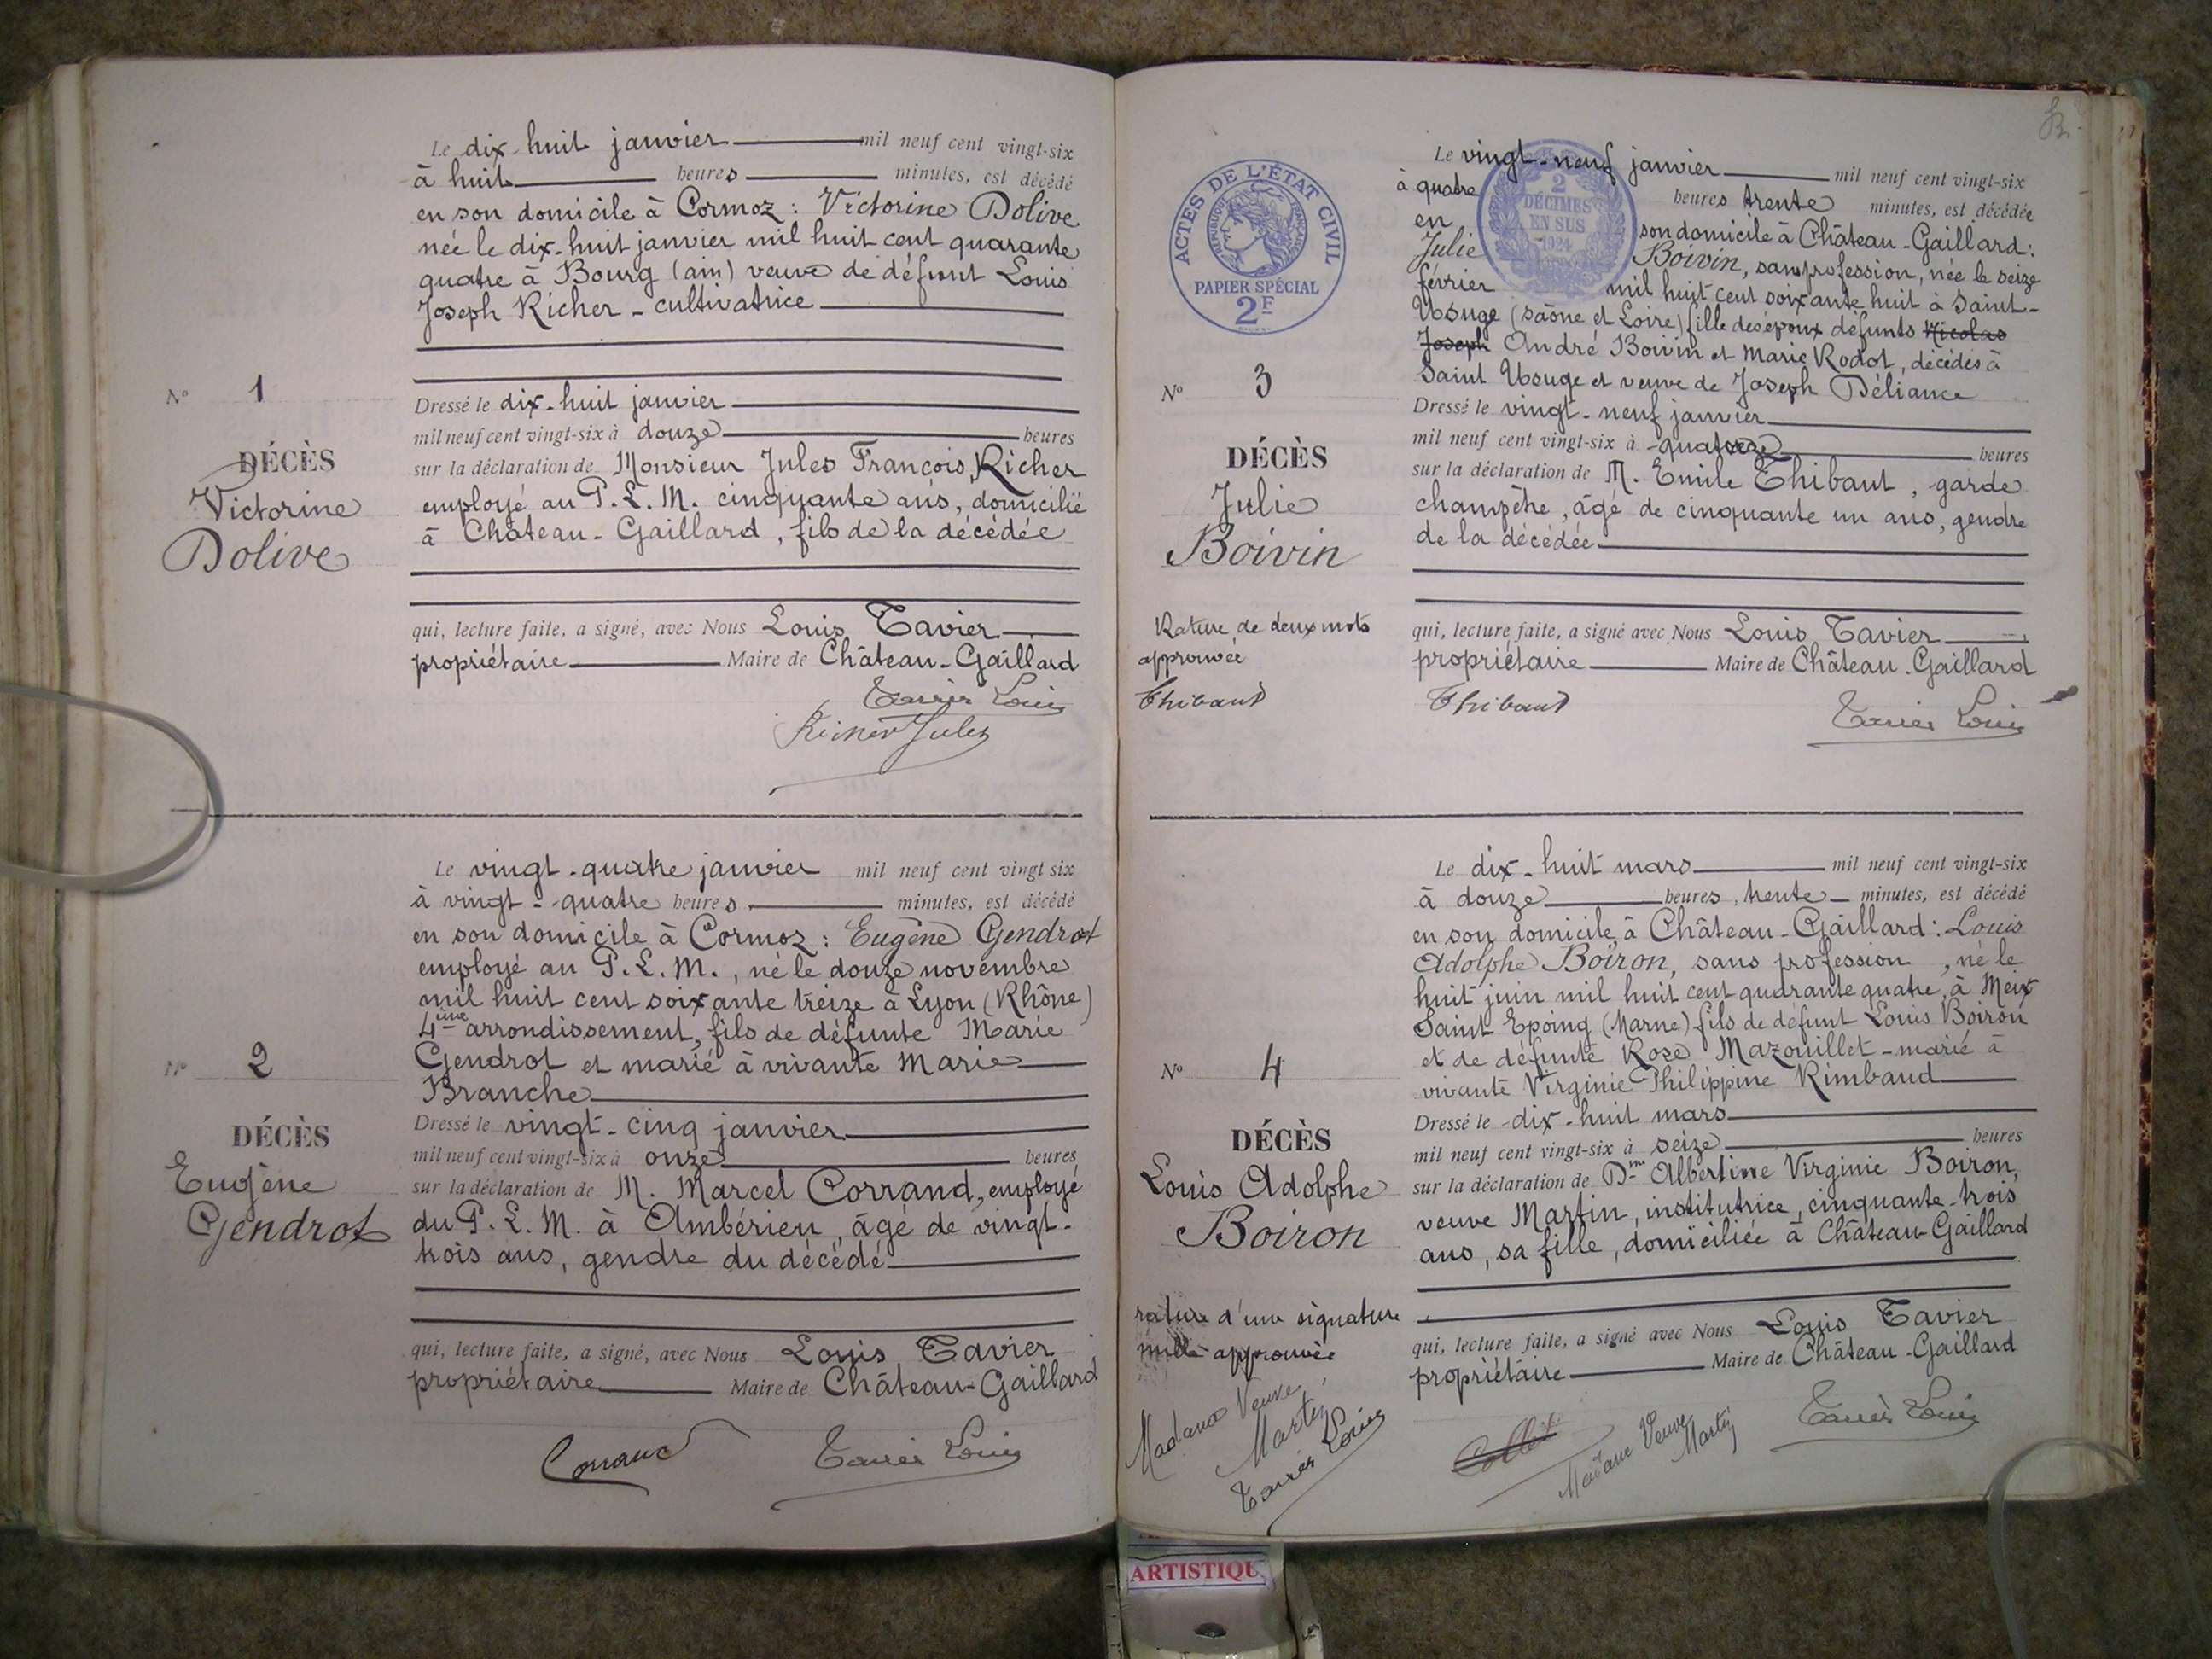 Le dix-huit janvier mil neuf cent vingt-six
à huit heures minutes, est décédé
en son domicile à Cormoz : Victorine Dolive
née le dix-huit janvier mil huit cent quarante
quatre à Bourg (ain) veuve de défunt Louis
Joseph Richer - cultivatrice
N° 1
DÉCÈS
Victorine
Dolive
Dressé le dix-huit janvier
mil neuf cent vingt-six à douze heures
sur la déclaration de Monsieur Jules François Richer
employé au P.L.M. cinquante ans, domicilié
à Château-Gaillard, fils de la décédée
qui, lecture faite, a signé, avec Nous Louis Tavier
propriétaire Maire de Château-Gaillard
Tavier Louis
Richer Jules
Le vingt-quatre janvier mil neuf cent vingt six
à vingt-quatre heures minutes, est décédé
en son domicile à Cormoz : Eugène Gendrot
employé au P.L.M., né le douze novembre
mil huit cent soixante treize à Lyon (Rhône)
4ème arrondissement, fils de défunte Marie
Gendrot et marié à vivante Marie
Branche
N° 2
DÉCÈS
Eugène
Gendrot
Dressé le vingt-cinq janvier
mil neuf cent vingt-six à onze heures
sur la déclaration de M. Marcel Corrand, employé
du P.L.M. à Ambérieu, âgé de vingt-
trois ans, gendre du décédé
qui, lecture faite, a signé, avec Nous Louis Tavier
propriétaire Maire de Château-Gaillard
Corrand
Tavier Louis
ACTES DE L'ÉTAT CIVIL
RÉPUBLIQUE FRANÇAISE
PAPIER SPÉCIAL
2F
2
DÉCIMES
EN SUS
1924
Le vingt-neuf janvier mil neuf cent vingt-six
à quatre heures trente minutes, est décédée
en son domicile à Château-Gaillard :
Julie Boivin, sans profession, née le seize
février mil huit cent soixante huit à Saint-
Usuge (Saône et Loire) fille des époux défunts Nicolas
Joseph André Boivin et Marie Rodot, décédés à
Saint Usuge et veuve de Joseph Déliance
N° 3
DÉCÈS
Julie
Boivin
Dressé le vingt-neuf janvier
mil neuf cent vingt-six à quatorze heures
sur la déclaration de M. Emile Thibaut, garde
champêtre, âgé de cinquante un ans, gendre
de la décédée
Rature de deux mots
approuvée
Thibaut
qui, lecture faite, a signé avec Nous Louis Tavier
propriétaire Maire de Château-Gaillard
Thibaut
Tavier Louis
Le dix-huit mars mil neuf cent vingt-six
à douze heures trente minutes, est décédé
en son domicile à Château-Gaillard : Louis
Adolphe Boiron, sans profession, né le
huit juin mil huit cent quarante quatre, à Meix
Saint Epoing (Marne) fils de défunt Louis Boiron
et de défunte Rose Mazouillet - marié à
vivante Virginie Philippine Rimbaud
N° 4
DÉCÈS
Louis Adolphe
Boiron
Dressé le dix-huit mars
mil neuf cent vingt-six à seize heures
sur la déclaration de Dme Albertine Virginie Boiron,
veuve Martin, institutrice, cinquante-trois
ans, sa fille, domiciliée à Château-Gaillard
rature d'une signature
nulle approuvée
Madame Veuve
Martin
Tavier Louis
qui, lecture faite, a signé avec Nous Louis Tavier
propriétaire Maire de Château-Gaillard
Collet
Madame Veuve
Martin
Tavier Louis
ARTISTIQU